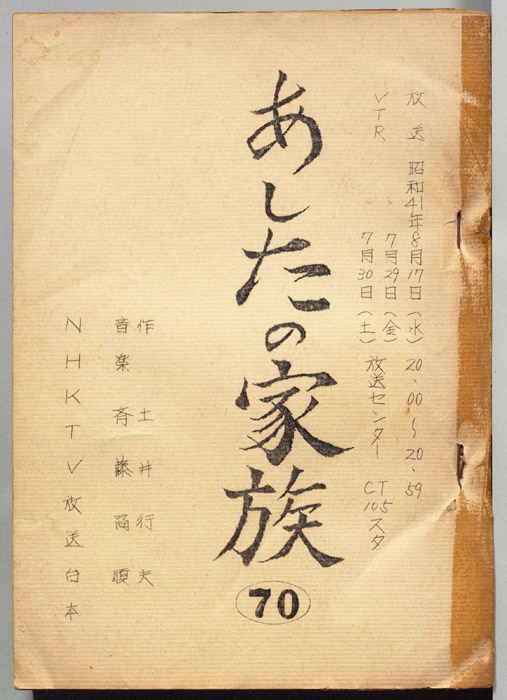 放送 昭和41年8月17日(水) 20.00~20.59
VTR 〃 7月29日(金)
7月30日(土) 放送センター CT105スタ
あしたの家族
70
作 土井行夫
音楽 斉藤高順
NHKTV放送台本